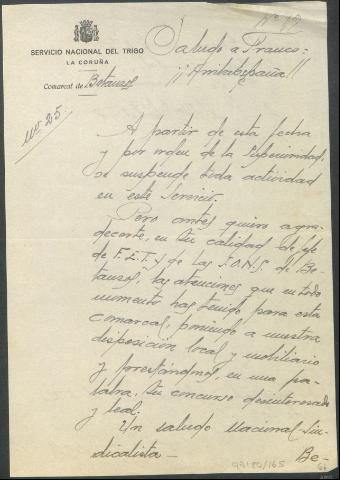 Nº 12
SERVICIO NACIONAL DEL TRIGO
LA CORUÑA
Comarcal de Betanzos
Nº 25.
Saludo a Franco:
¡¡Arriba España!!
A partir de esta fecha
y por orden de la Superioridad,
se suspende toda actividad
en este Servicio.
Pero antes quiero agra-
decerte, en tu calidad de Jefe
de F.E.T. y de las J.O.N.S. de Be-
tanzos, las atenciones que en todo
momento has tenido para esta
comarcal, poniendo a nuestra
disposición local y mobiliario
y prestándonos, en una pa-
labra, tu concurso desinteresado
y leal.
Un saludo Nacional-Sin-
dicalista — Be-